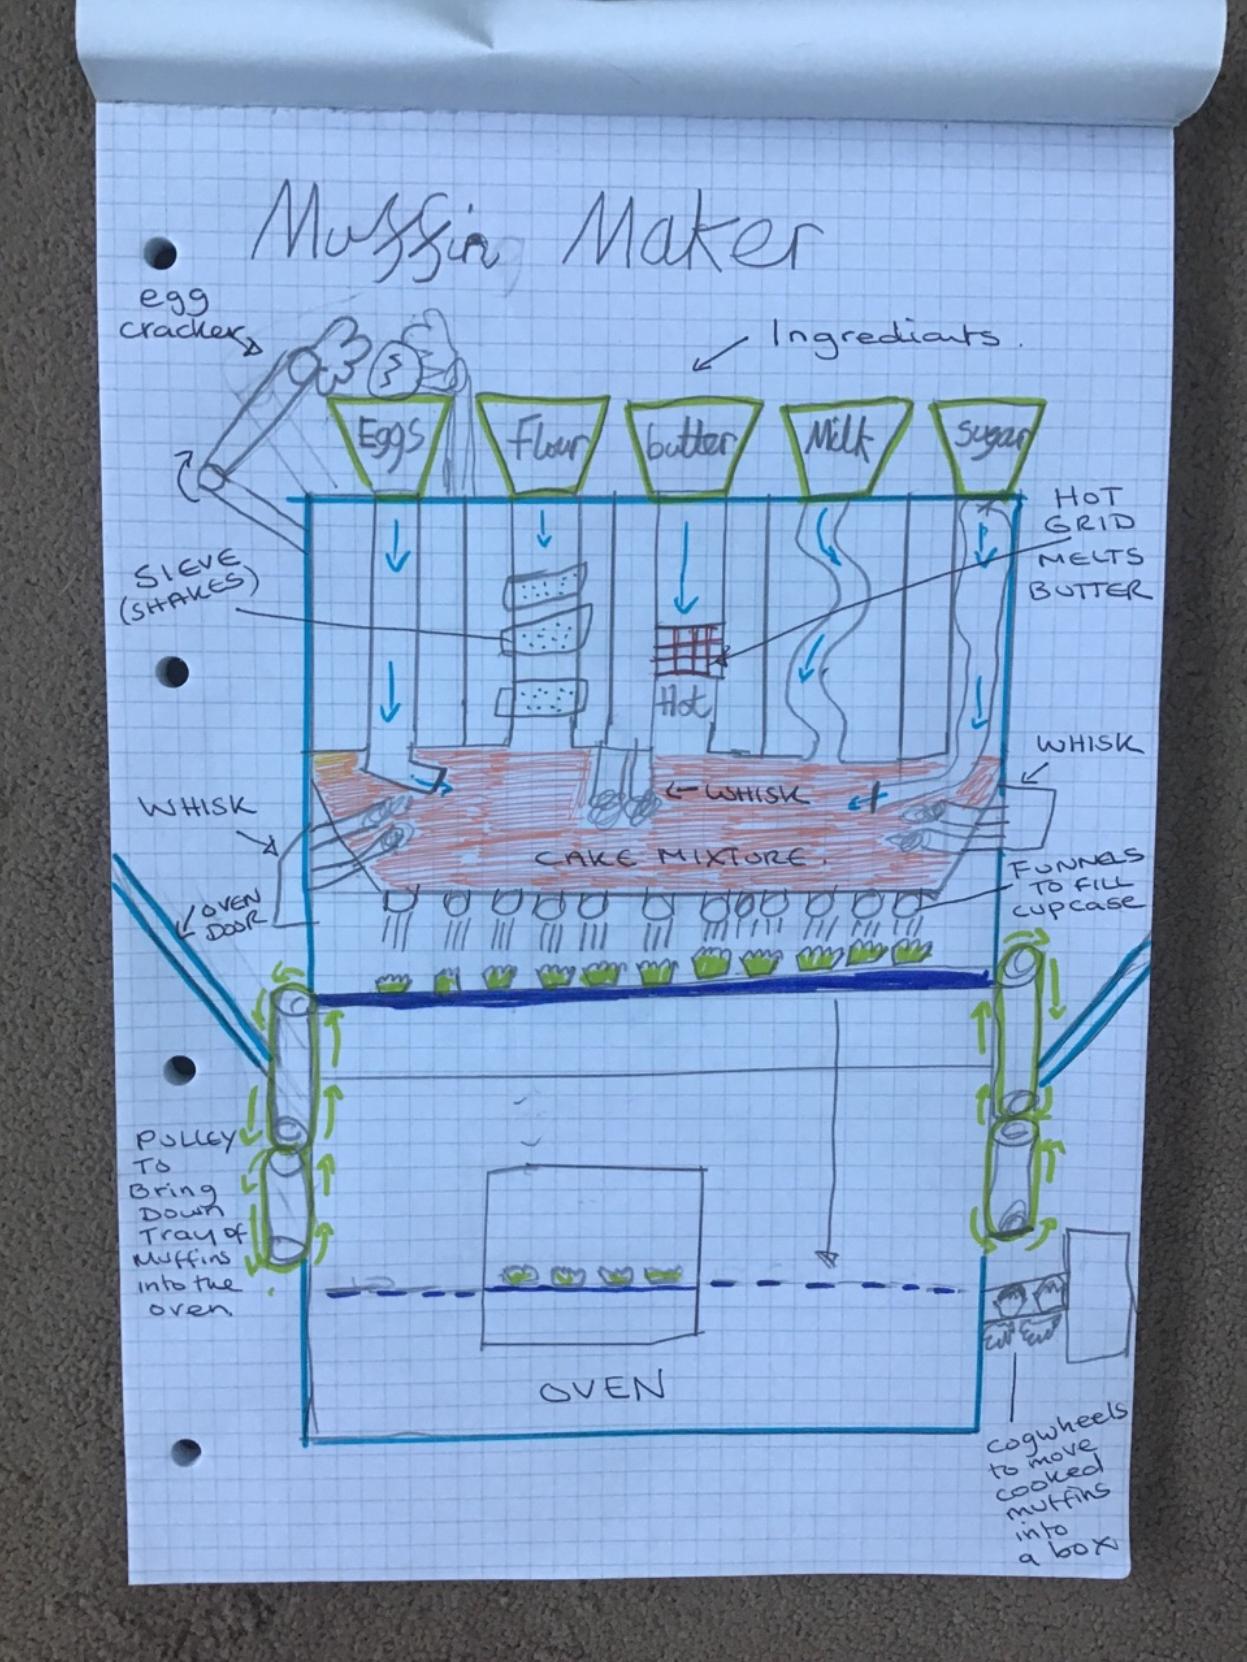 Muffin Maker
egg
cracker
Ingrediants.
Eggs
Flour
butter
Milk
Sugar
HOT
GRID
MELTS
BUTTER
SIEVE
(SHAKES)
Hot
WHISK
WHISK
WHISK
CAKE MIXTURE.
FUNNELS
TO FILL
CUPCASE
OVEN
DOOR
PULLEY
TO
Bring
Down
Tray of
Muffins
into the
oven.
OVEN
cogwheels
to move
cooked
muffins
into
a box